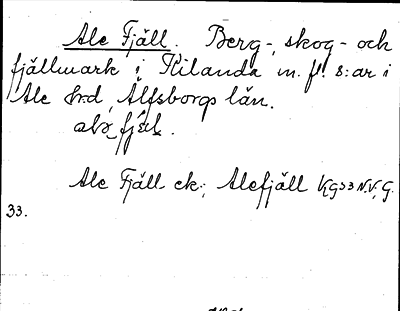 Ale Fjäll. Berg-, skog- och
fjällmark i Kilanda m. fl. s:ar i
Ale hrd, Älfsborgs län.
fjäl.
Ale Fjäll ek.; Alefjäll KgS3 N.V. G.
33.